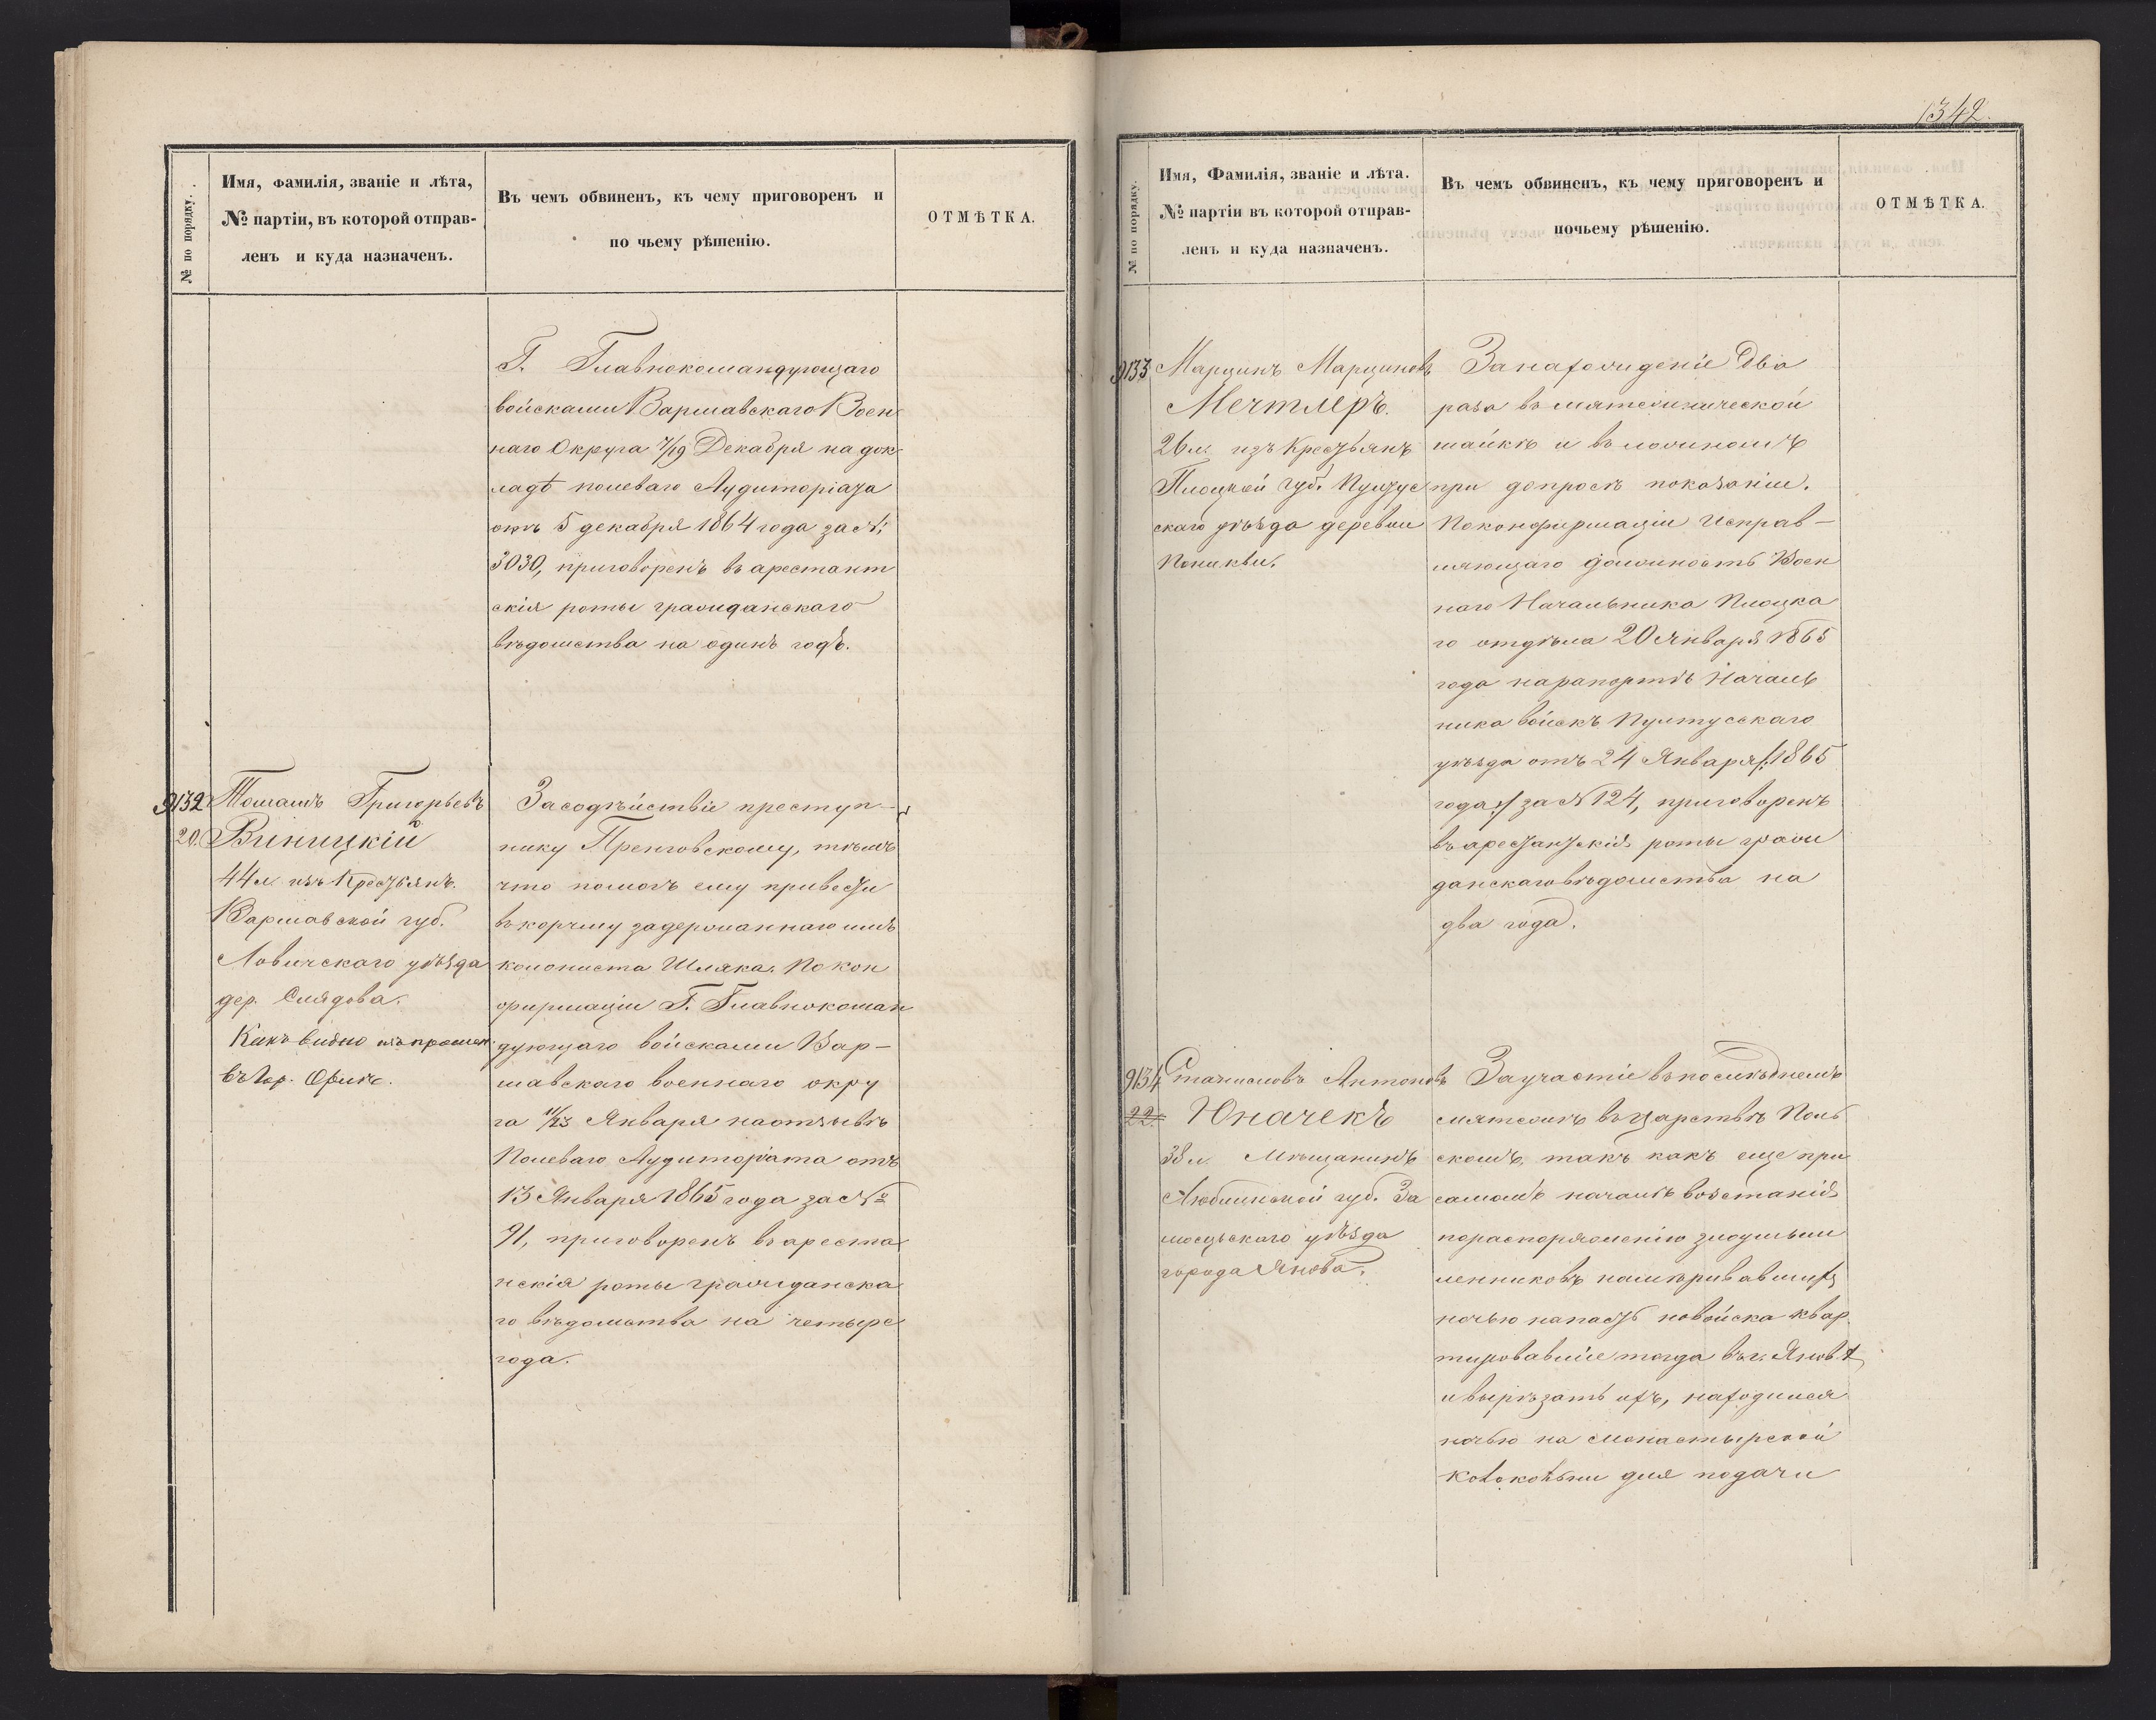 № по порядку.
Имя, фамилія, званіе и лѣта,
№ партіи, въ которой отправ-
ленъ и куда назначенъ.
Въ чемъ обвиненъ, къ чему приговоренъ и
по чьему рѣшенію.
ОТМѢТКА.
Г. Главнокомандующаго
войсками Варшавскаго Воен
наго Округа 7/19 Декабря на док-
ладѣ полеваго Аудиторіата
отъ 5 декабря 1864 года за №:
3030, приговоренъ въ арестант
скія роты гражданскаго
вѣдомства на одинъ годъ.
9132
20.
Томашъ Григорьевъ
Виницкій
44 л. изъ Крестьянъ.
Варшавской губ.
Ловичскаго уѣзда
дер. Слядова.
Какъ видно изъ
въ Гор.
За содѣйствіе преступ-
нику Пренговскому, тѣмъ
что помогъ ему привести
въ корчму задержаннаго имъ
колониста Шляка. По кон
фирмаціи Г. Главнокоман
дующаго войсками Вар-
шавскаго военнаго окру
га 11/23 Января на отзывѣ
Полеваго Аудиторіата отъ
13 Января 1865 года за №
91, приговоренъ въ арестан
нскія роты гражданска
го вѣдомства на четыре
года.
1342.
№ по порядку.
Имя, Фамилія, званіе и лѣта.
№ партіи въ которой отправ-
ленъ и куда назначенъ.
Въ чемъ обвиненъ, къ чему приговоренъ и
почьему рѣшенію.
ОТМѢТКА.
9133
Марцинъ Марциновъ
Мечтлеръ.
26 л. изъ Крестьянъ
Плоцкой губ. Пултус
скаго уѣзда деревни
Пониквы.
За нахожденіе два
раза въ мятежнической
шайкѣ и въ ложномъ
при допросѣ показаніи.
По конфирмаціи Исправ-
ляющаго должность Воен
наго Начальника Плоцка
го отдѣла 20 Января 1865
года на рапортѣ Началь
ника войскъ Пултусскаго
уѣзда отъ 24 Января /:1865
года:/ за № 124, приговоренъ
въ арестантскія роты граж
данскаго вѣдомства на
два года.
9134
22.
Станиславъ Антоновъ
Юначекъ
38 л. Мѣщанинъ
Люблинской губ. За
мосцьскаго уѣзда
города Янова.
За участіе въ послѣднемъ
мятежѣ въ Царствѣ Поль
скомъ, такъ какъ еще при
самомъ началѣ возстанія
по распоряженію злоумыш
ленниковъ намѣривавшихъ
ночью напасть на войска квар
тировавшіе тогда въ г. Яновѣ
и вырѣзать ихъ, находился
ночью на монастырской
колокольни для подачи